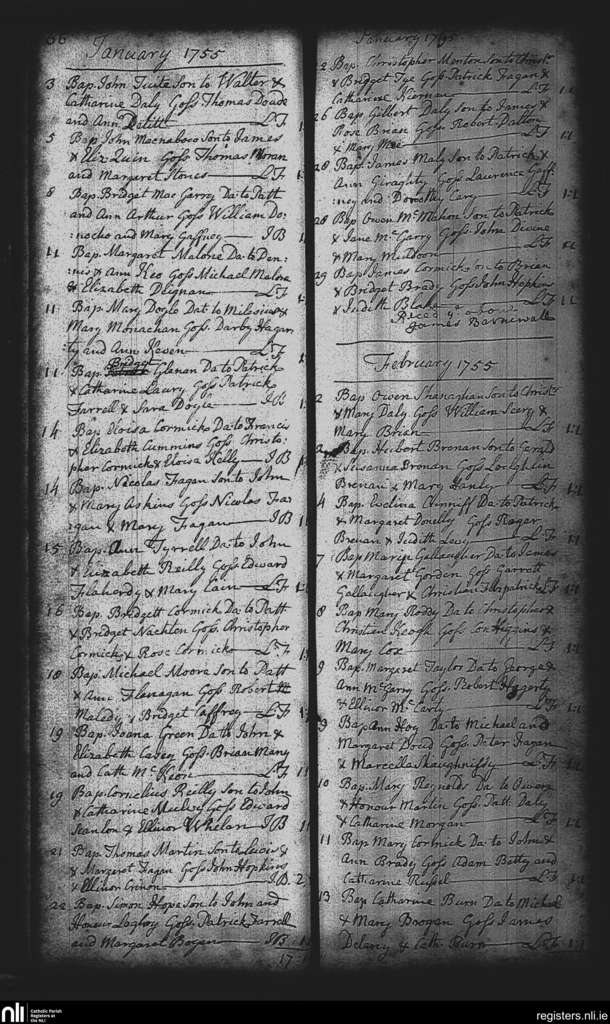 36
January 1755
3 Bap. John Tuite Son to Walter &
Catharine Daly Goss Thomas Doude
and Ann L:F 1
5 Bap. John Macnaboo Son to James
& Eliz Quin Goss Thomas Moran
and Margaret Hones L:F 1
8 Bap. Bridget Mac Garry Da: to Patt
and Ann Arthur Goss William Do:
nocho and Mary Gaffney JB 1
11 Bap. Margaret Malone Da: to Den:
:nis & Ann Keo Goss Michael Malone
& Elizabeth Dignan L:F
11 Bap. Mary Doyle Dat to Milesius &
Mary Monachan Goss. Darby Hagar
ty and Ann Keven L:F
Bridget
11 Bap. Glenan Da: to Patrick
& Catharine Laury Goss Patrick
Farrell & Sara Doyle JB 1
14 Bap. Eloisa Cormick Da: to Francis
& Elizabeth Cummins Goss. Christo:
pher Cormick & Eloisa Kelly JB
14 Bap. Nicolas Fagan Son to John
& Mary Askins Goss Nicolas Fa:
gan & Mary Fagan JB
15 Bap. Ann Tyrrell Da: to John
& Elizabeth Reilly Goss Edward
Flaherdy & Mary Cain L:F
16 Bap. Bridgett Cormick Da: to Patt
& Bridget Naghten Goss. Christopher
Cormick & Rose Cormick L:F
18 Bap. Michael Moore Son to Patt
& Ann Flanagan Goss Robert
Malady & Bridget Caffrey L:F
19 Bap. Joana Green Da to John &
Elizabeth Casey Goss. Brian Many
and Cath Mc Keon L:F 11
19 Bap. Cornelius Reilly Son to John
& Catharine Goss Edward
Scanlon & Ellinor Whelan JB
21 Bap. Thomas Martin Son to Lewis &
& Margaret Fagan Goss John Hopkins
& Ellinor JB. 2
22 Bap. Simon Hope Son to John and
Honour Goss. Patrick Farrell
and Margaret Bogan JB
17
January 1755
22 Bap. Christopher Menton Son to Christr
& Bridget Tye Goss Patrick Fagan &
Catharine Kiernan L:F
26 Bap Gilbert Daly Son to James &
Rose Brian Goss Robert Dalton
& Mary L:F
28 Bap. James Maly Son to Patrick &
Ann Giraghty Goss Laurence Gaff
:ney and Dorothy Cary L:F
28 Bap Owen McMahon Son to Patrick
& Jane McGarry Goss. John Divine
& Mary Muldoon L:F
29 Bap. James Cormick Son to Brian
& Bridget Brady Goss John Hopkins
& Judith Blake L:F
Reced ye above
James Barnewall
February 1755
2 Bap Owen Shanaghan Son to Christr
& Mary Daly Goss William Seery &
Mary Brian L:F
2 Bap. Herbert Bronan Son to Gerald
& Susanna Bronan Goss Loughlin
Brenan & Mary Hanly L:F
4 Bap Evelina Da: to Patrick
& Margaret Donelly Goss Roger
Brenan & Judith Levy L:F
7 Bap Maria Gallaugher Da: to James
& Margaret Gorden Goss Garrett
Gallaugher & Christian Fitzpatrick L:F
8 Bap Mary Roddy Da to Christopher &
Christien Keogh Goss Con Higgins &
Mary Cox L:F
9 Bap. Margaret Taylor Da to George &
Ann McGarry Goss. Robert Hagerty
& Ellinor McCarty L:F
9 Bap Ann Hoy Da to Michael and
Margaret Goss Peter Fagan
& Marcella Shaughnissy L:F
10 Bap. Mary Reynolds Da to Owen
& Honour Martin Goss Patt Daly
& Catharine Morgan L:F
11 Bap Mary Cormick Da: to John &
Ann Brady Goss Adam Betty and
Catharine Russel L:F
13 Bap Catharine Burn Da to Michael
& Mary Brogan Goss James
Delany & Cath Burn L:F
nli
Catholic Parish
Registers at
the NLI
registers.nli.ie